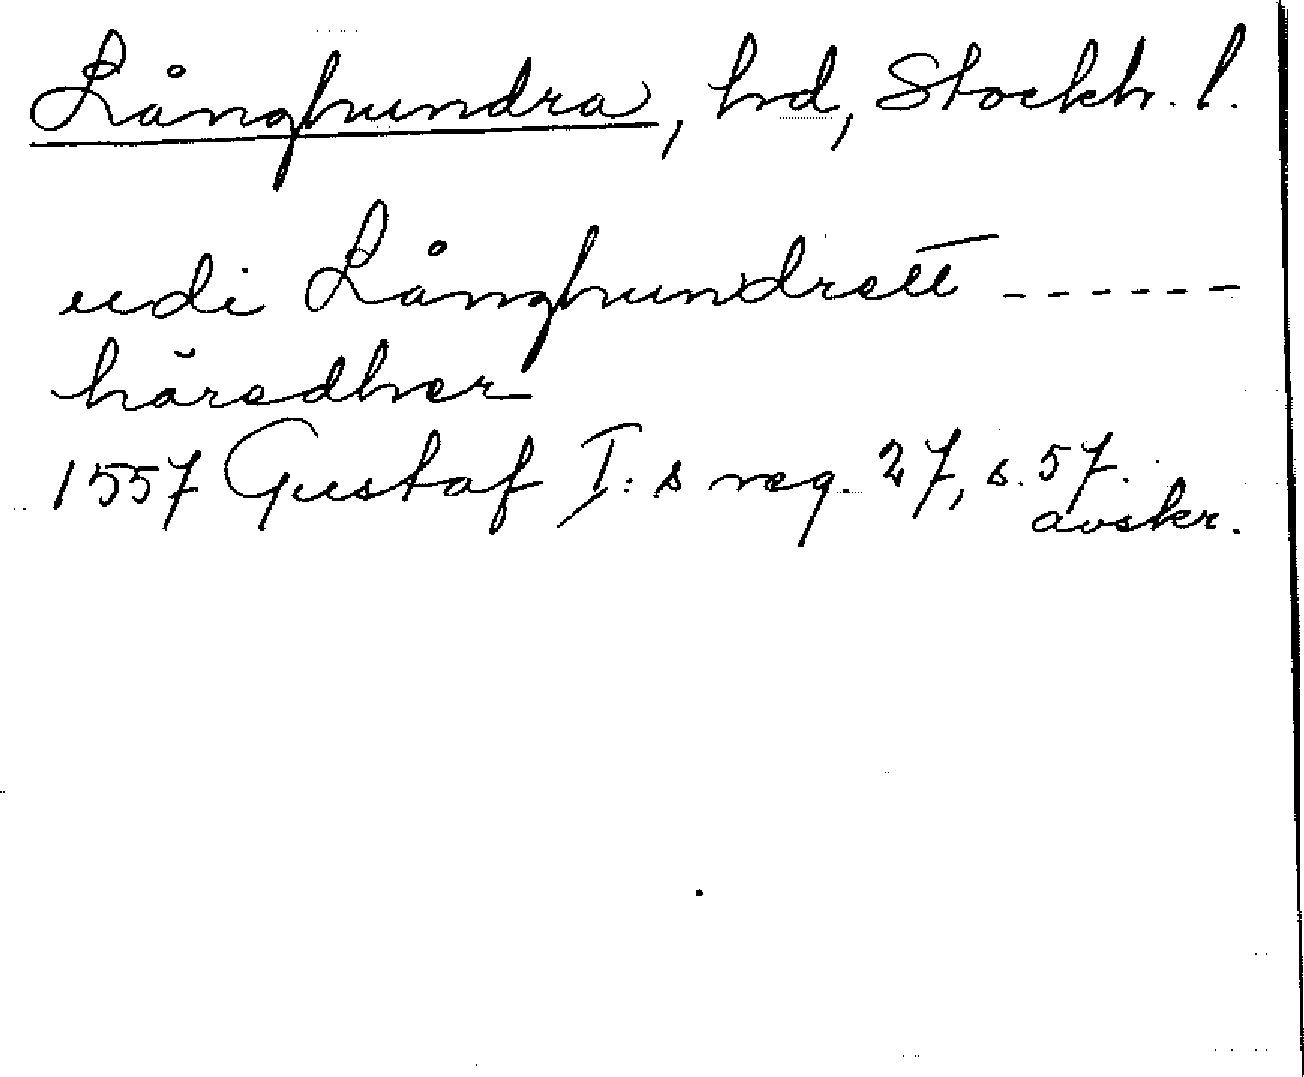 Långhundra, hd, Stockh. l.
udi Långhundrett ------
häredher
1557 Gustaf I:s reg. 27, s. 57.
avskr.